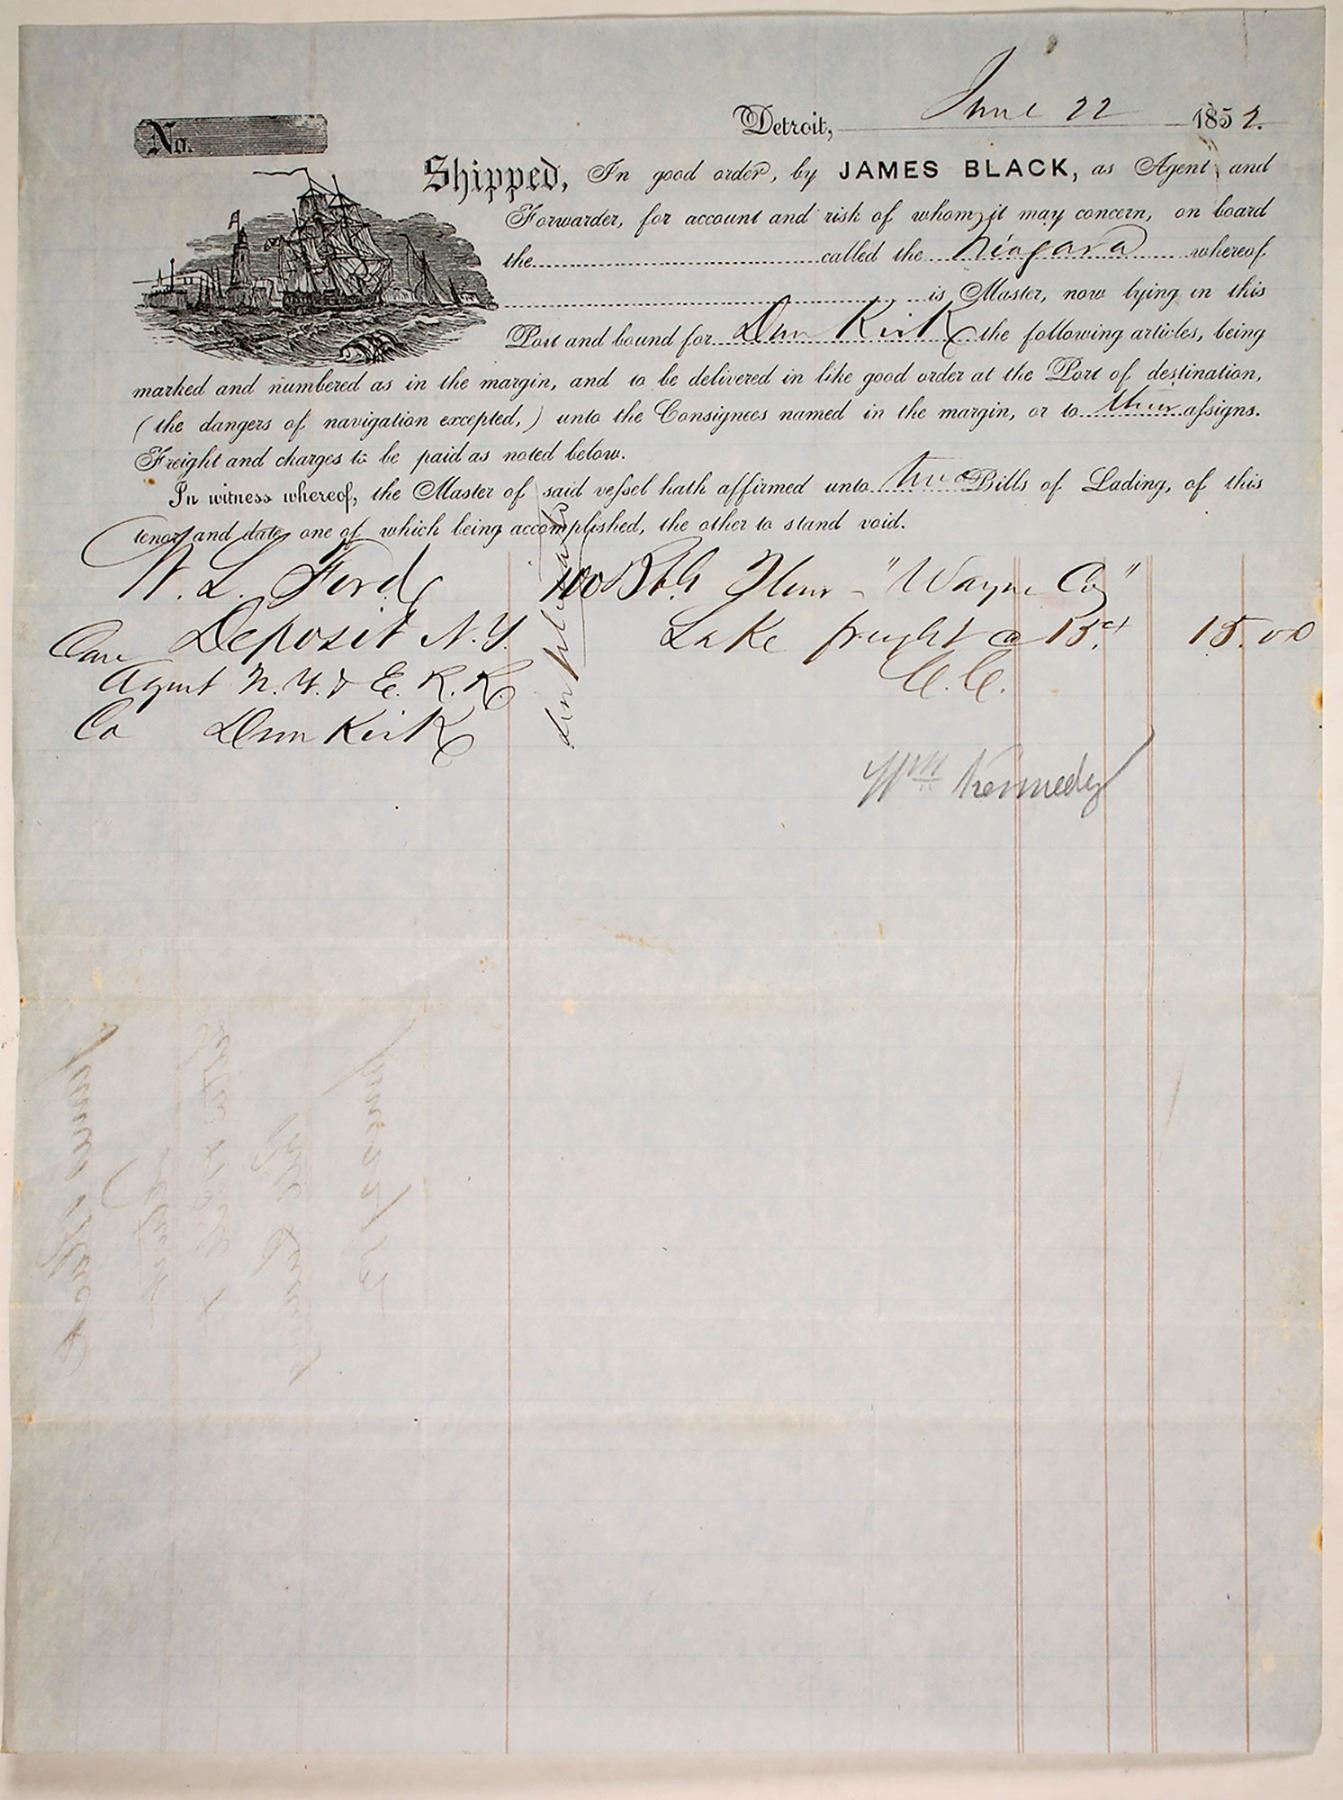 No.
Detroit, June 22 1852.
Shipped, In good order, by JAMES BLACK, as Agent and
Forwarder, for account and risk of whom it may concern, on board
the called the Niagara whereof
is Master, now lying in this
Port and bound for Dun Kirk the following articles, being
marked and numbered as in the margin, and to be delivered in like good order at the Port of destination,
(the dangers of navigation excepted,) unto the Consignees named in the margin, or to their assigns.
Freight and charges to be paid as noted below.
In witness whereof, the Master of said vessel hath affirmed unto two Bills of Lading, of this
tenor and date one of which being accomplished, the other to stand void.
W. L. Ford
Deposit N.Y.
Care
Agent N.Y. & E. R. R.
Co Dun Kirk
100 Bbls Flour - "Wayne Co"
Lake freight @ 15cts 15.00
C.C.
Wm Kennedy